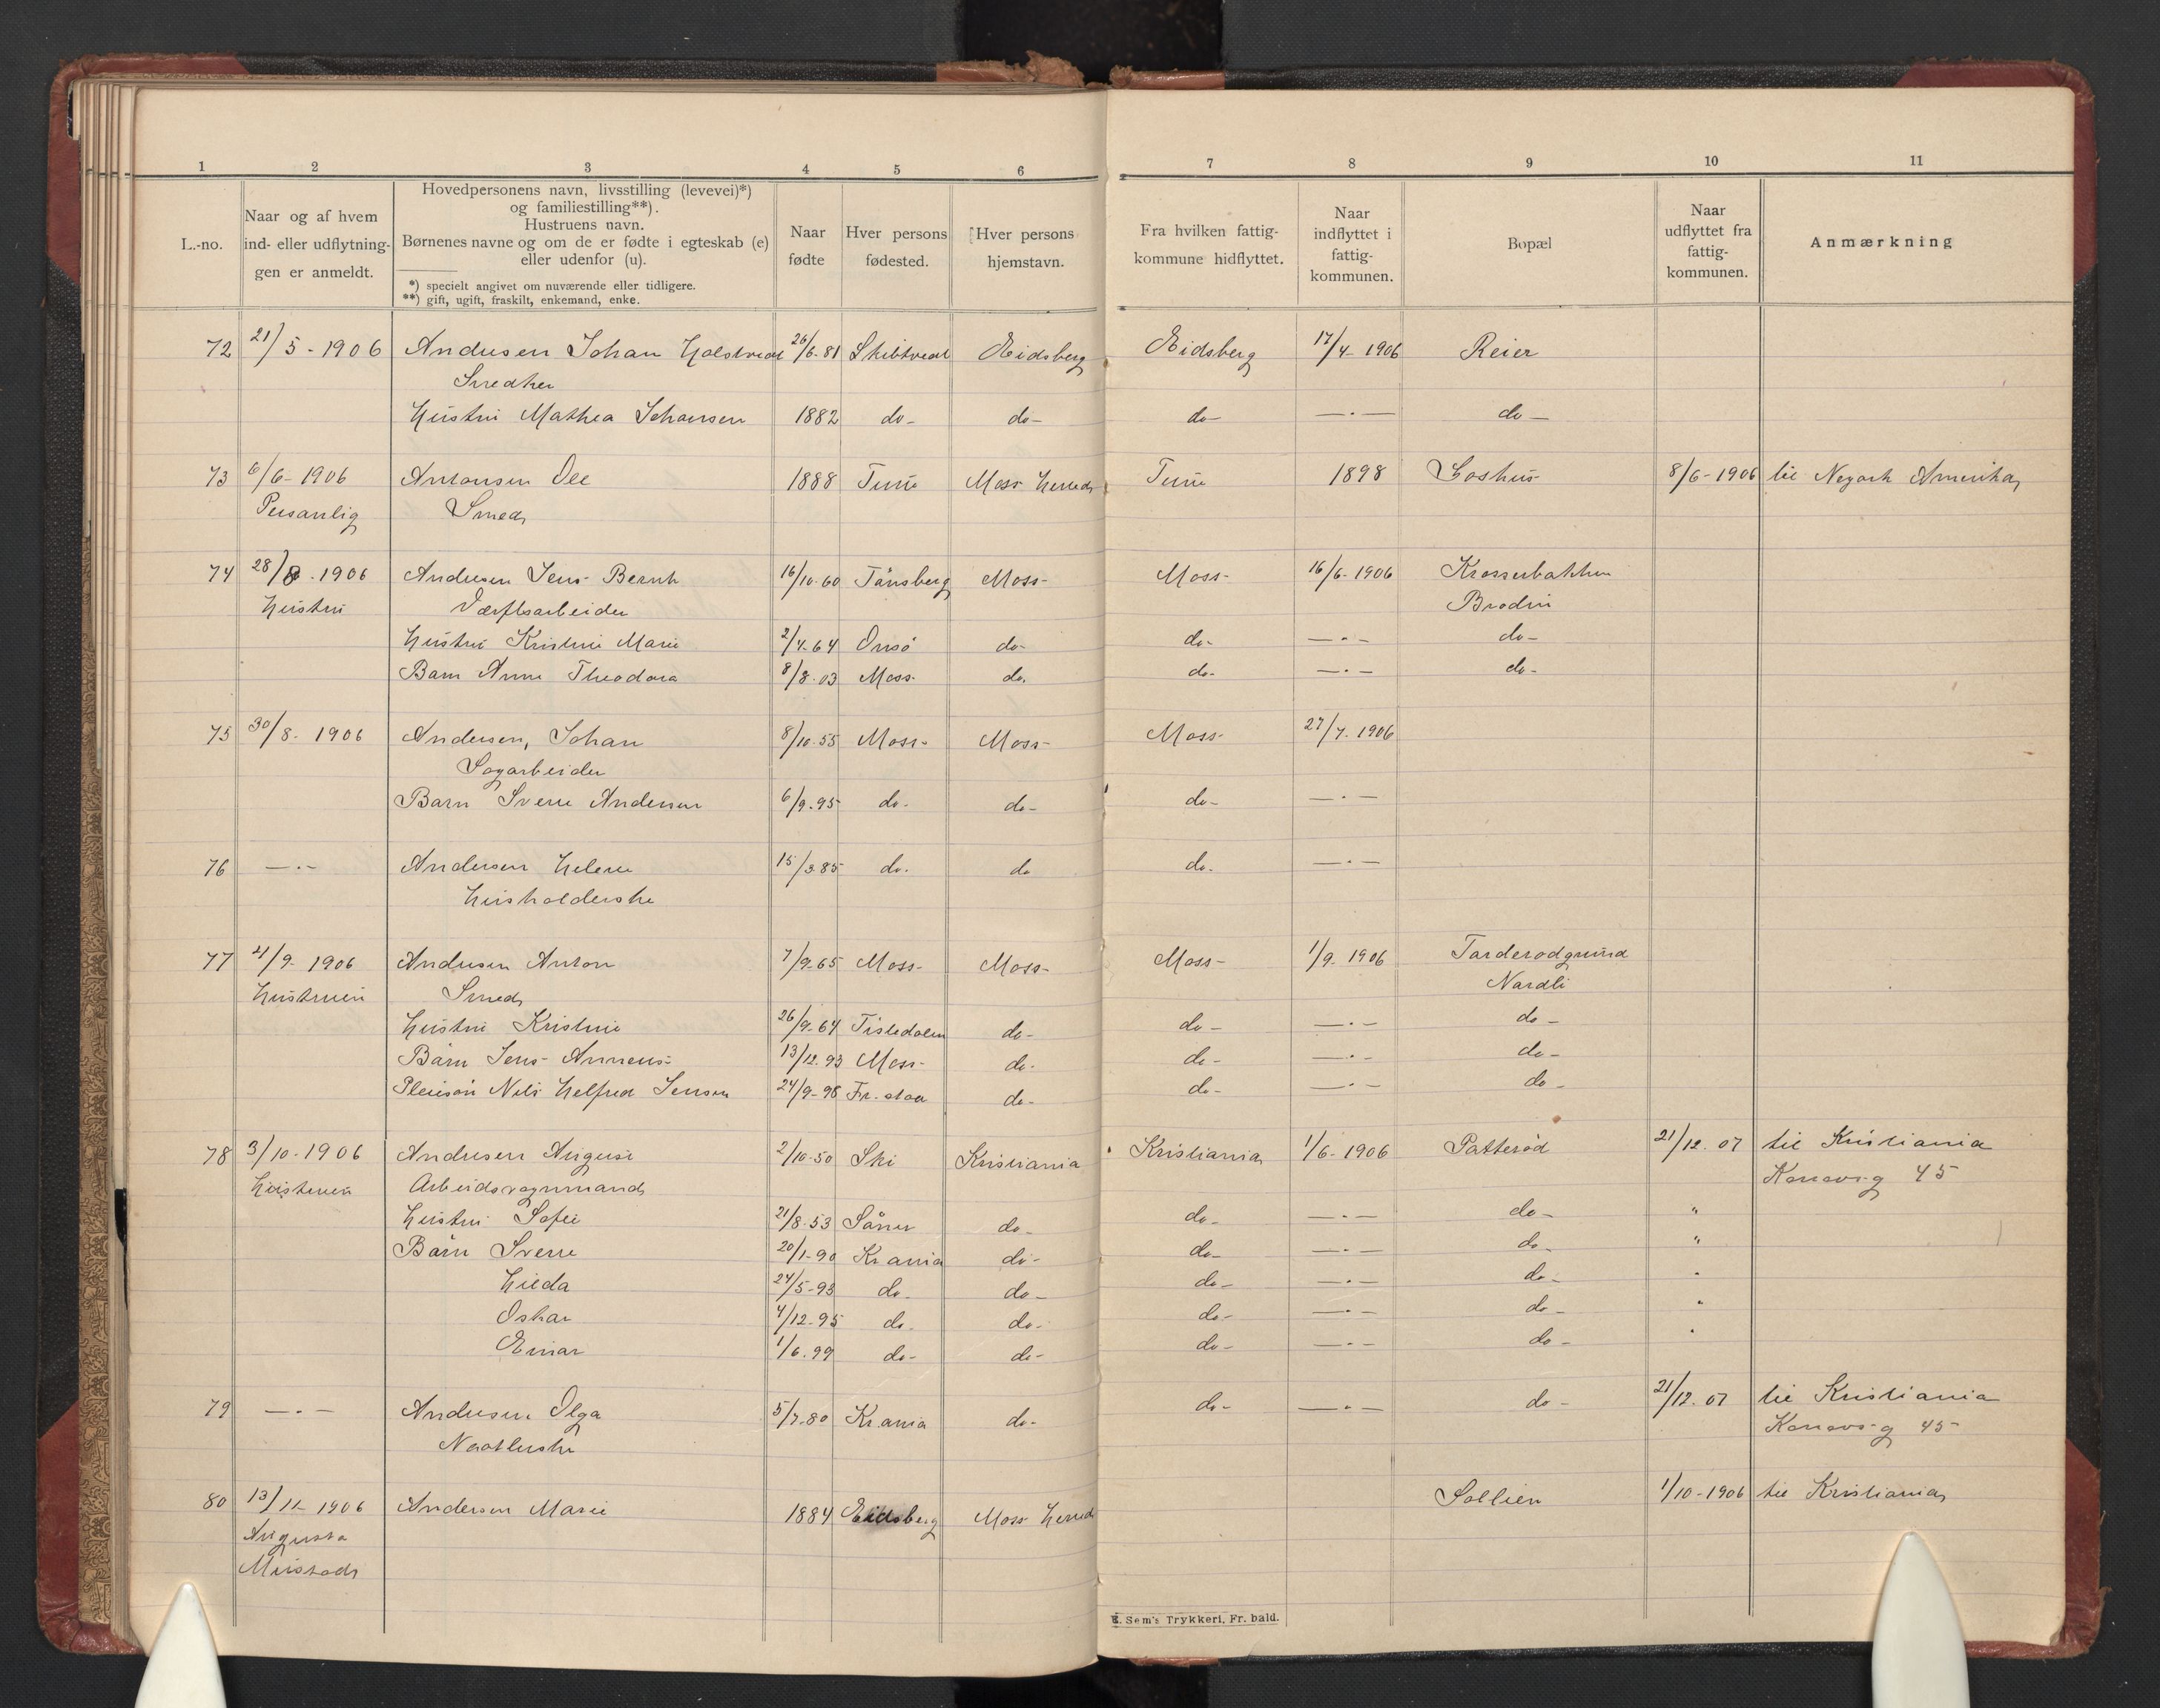 1 2 3 4 5 6 7 8 9 10 11
L.-no.
Naar og af hvem
ind- eller udflytnin-
gen er anmeldt.
Hovedpersonens navn, livsstilling (levevei)*)
og familiestilling**).
Hustruens navn.
Børnenes navne og om de er fødte i egteskab (e)
eller udenfor (u).
*) specielt angivet om nuværende eller tidligere.
**) gift, ugift, fraskilt, enkemand, enke.
Naar
fødte
Hver persons
fødested.
Hver persons
hjemstavn.
Fra hvilken fattig-
kommune hidflyttet.
Naar
indflyttet i
fattig-
kommunen.
Bopæl
Naar
udflyttet fra
fattig-
kommunen.
Anmærkning
72 21/5 - 1906 Andersen Johan 26/6-81 Skibtvedt Eidsberg Eidsberg 17/4- 1906 Reier
Hustru Mathea Johansen 1882 do- do- do- —·— do-
73 6/6- 1906 Antonsen Ole 1888 Tune Moss Herred Tune 1898 8/6-1906 til Neyork Amerika
Personlig Smed
74 28/8-1906 Andersen Jens Bernh 16/10-60 Tånsberg Moss Moss 16/6-1906 Krosserbakken
Hustru Værftsarbeider
Hustru Kristine Marie 2/4-64 Onsø do- do- —·— do-
Barn Anne Theodora 8/8-03 Moss do. do- —·— do-
75 30/8- 1906 Andersen, Johan 8/10-55 Moss Moss Moss 27/7-1906
Sagarbeider
Barn Sverre Andersen 6/9-95 do- do- do- —·—
76 —·— Andersen Helene 15/3-85 do. do do. —·—
Husholderske
77 4/9- 1906 Andersen Anton 7/9-65 Moss Moss Moss 1/9-1906 Tarderodgrund
Hustruen Smed Nardli
Hustru Kristine 26/9-64 Tistedalen do- do- —·— do-
Barn Jens Annæus 13/12-93 Moss do- do- —·— do-
Pleiesøn Nils Helfred Jensen 24/9-98 Fr.stad do- do- —·— do-
78 3/10-1906 Andersen August 2/10-50 Ski Kristiania Kristiania 1/6-1906 Patterød 21/12-07 til Kristiania
Hustruen Arbeidsvognmand 45
Hustru Sofie 21/8-53 Såner do- do- —·— do- "
Barn Sverre 20/1-90 Kr.ania do- do- —·— do- "
Hilda 24/5-93 do- do- do- —·— do- "
Oskar 4/12-95 do- do- do- —·— do- "
Einar 1/6-99 do- do- do- —·— do- "
79 —·— Andersen Olga 5/7-80 Kr.ania do- do- —·— do- 21/12-07 til Kristiania
45
80 13/11-1906 Andersen Marie 1884 Eidsberg Moss Herred Sollien 1/10-1906 til Kristiania
Augusta
E. Sem's Trykkeri, Fr. hald.